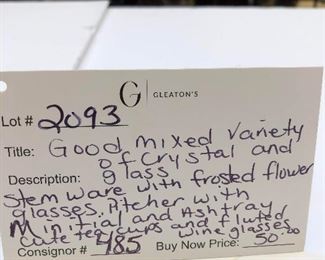 G | GLEATON'S
Lot # 2093
Title: Good mixed variety
of crystal and
Description: glass
Stem ware with frosted flower
glasses. Pitcher with
M initial and Ashtray
cute tea cups and fluted
wine glasses
Consignor # 485 Buy Now Price: 50.00